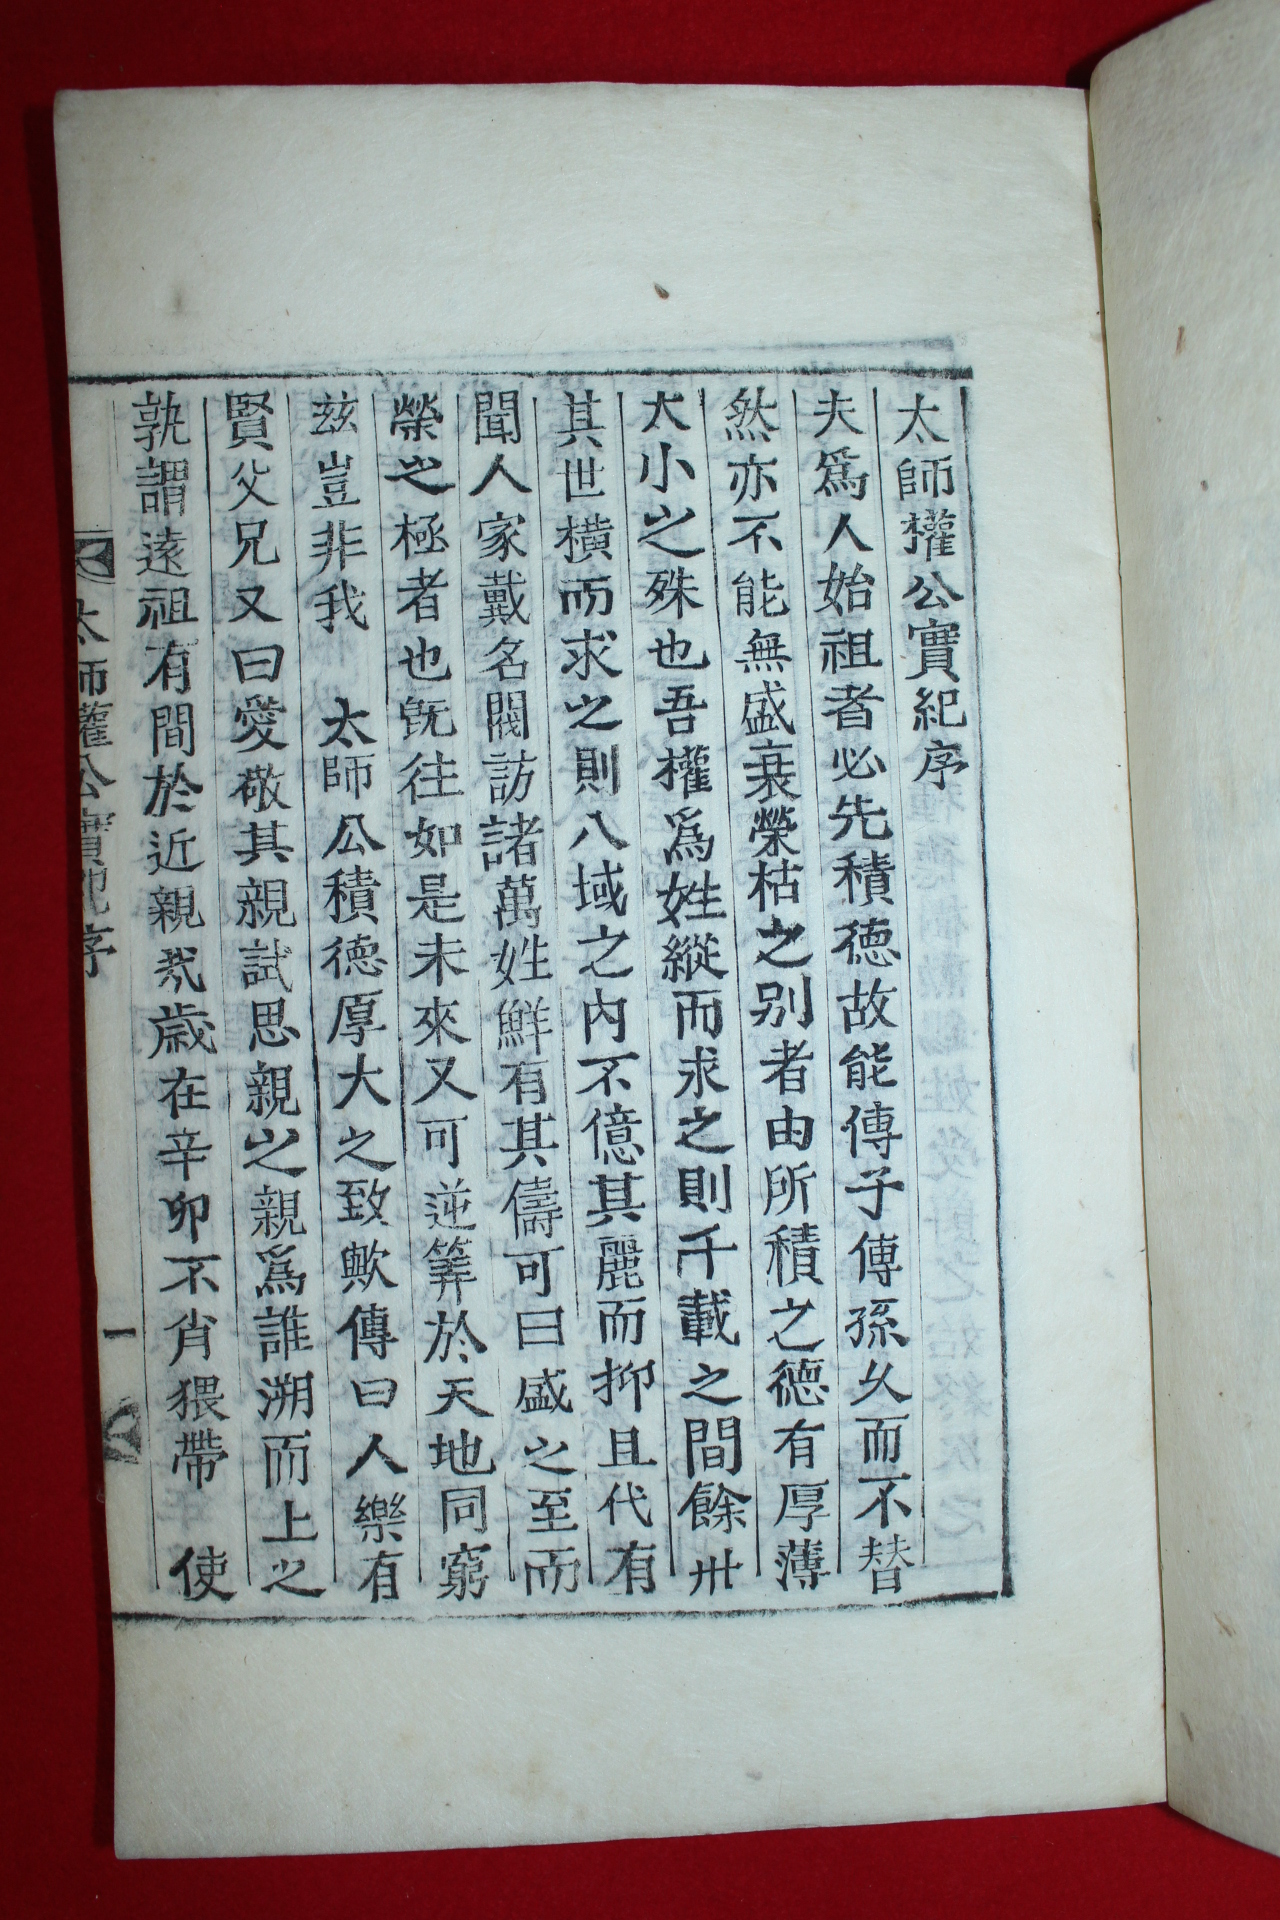 太師權公實紀序
夫爲人始祖者必先積德故能傳子傳孫久而不替
然亦不能無盛衰榮枯之别者由所積之德有厚薄
大小之殊也吾權爲姓縱而求之則千載之間餘卅
其世橫而求之則八域之內不億其麗而抑且代有
聞人家戴名閥訪諸萬姓鮮有其儔可曰盛之至而
榮之極者也旣往如是未來又可逆筭於天地同窮
玆豈非我 太師公積德厚大之致歟傳曰人樂有
賢父兄又曰愛敬其親試思親之親爲誰溯而上之
孰謂遠祖有間於近親㢤歲在辛卯不肖猥帶 使
太師權公實紀序 一